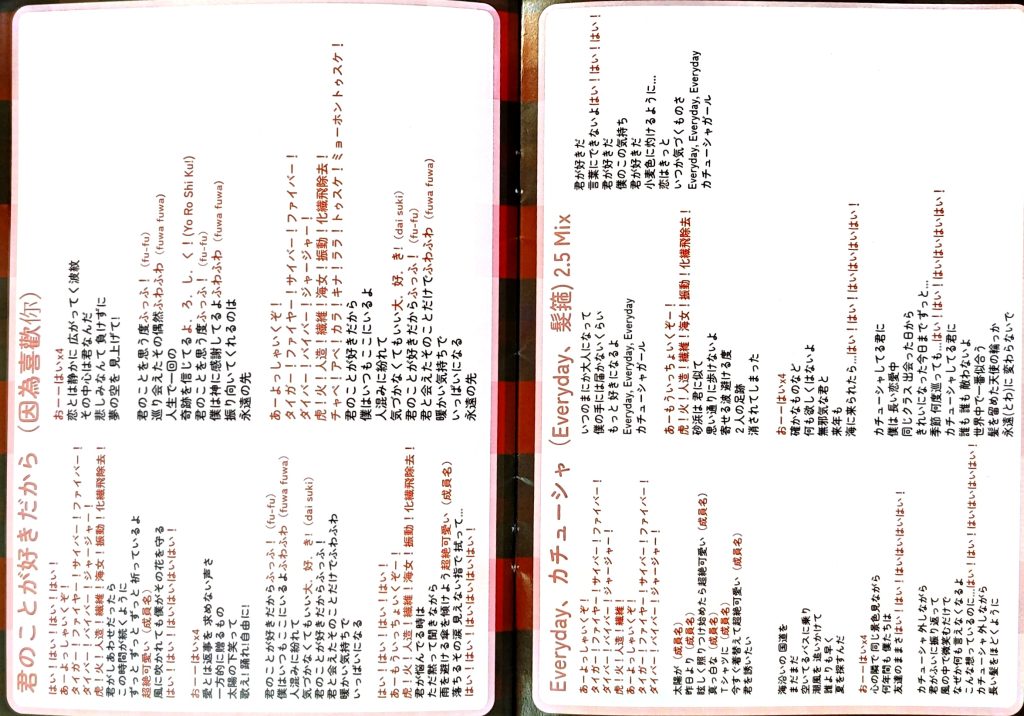 君のことが好きだから（因為喜歡你）
はい！はい！はいはいはいはい！
あーよっしゃいくぞ！
タイガー！ファイヤー！サイバー！ファイバー！
ダイバー！バイバー！ジャージャー！
虎！火！人造！繊維！海女！振動！化繊飛除去！
君がしあわせだったら
この時間が続くように
ずっと ずっと ずっと 祈っているよ
超絶可愛い（成員名）
風に吹かれても僕がその花を守る
はい！はい！はいはいはいはい！
おーはいx4
愛とは返事を 求めない声さ
一方的に贈るもの
太陽の下 笑って
歌え！踊れ！自由に！
君のことが好きだからふっふ！（fu-fu）
僕はいつもここにいるよふわふわ（fuwa fuwa）
人混みに紛れて
気づかなくてもいい大、好、き！（dai suki）
君のことが好きだからふっふ！
君と会えたそのことだけでふわふわ
暖かい気持ちで
いっぱいになる
はい！はい！はいはいはいはい！
あーもういっちょいくぞー！
虎！火！人造！繊維！海女！振動！化繊飛除去！
君が悩んでる時は
ただ黙って聞きながら
雨を避ける傘を傾けよう超絶可愛い（成員名）
落ちるその涙 見えない指で 拭って…
はい！はい！はいはいはいはい！
おーはいx4
恋とは静かに 広がってく波紋
その中心は君なんだ
悲しみなんて 負けずに
夢の空を 見上げて！
君のことを思う度ふっふ！（fu-fu）
巡り会えたその偶然ふわふわ（fuwa fuwa）
人生で一回の
奇跡を信じてるよ、ろ、し、く！(Yo Ro Shi Ku!)
君のことを思う度ふっふ！（fu-fu）
僕は神に感謝してるよふわふわ（fuwa fuwa）
振り向いてくれるのは
永遠の先
あーよっしゃいくぞ！
タイガー！ファイヤー！サイバー！ファイバー！
ダイバー！バイバー！ジャージャー！
虎！火！人造！繊維！海女！振動！化繊飛除去！
チャペ！アペ！カラ！キナ！ララ！トゥスケ！ミョーホントゥスケ！
君のことが好きだから
僕はいつもここにいるよ
人混みに紛れて
気づかなくてもいい大、好、き！（dai suki）
君のことが好きだからふっふ！（fu-fu）
君と会えたそのことだけでふわふわ（fuwa fuwa）
暖かい気持ちで
いっぱいになる
永遠の先
Everyday、カチューシャ（Everyday、髮箍）2.5 Mix
あーよっしゃいくぞ！
タイガー！ファイヤー！サイバー！ファイバー！
ダイバー！バイバー！ジャージャー！
虎！火！人造！繊維！
あーよっしゃいくぞ！
タイガー！ファイヤー！サイバー！ファイバー！
ダイバー！バイバー！ジャージャー！
太陽が（成員名）
昨日より（成員名）
眩しく照りつけ始めたら超絶可愛い（成員名）
真っ白な（成員名）
Ｔシャツに（成員名）
今すぐ着替えて超絶可愛い（成員名）
君を誘いたい
海沿いの 国道を
まだまだ
空いてるバスに乗り
潮風を 追いかけて
誰よりも早く
夏を探すんだ
おーはいx2
心の隣で 同じ景色見ながら
何年間も僕たちは
友達のままさはい！はいはいはいはい！
カチューシャ外しながら
君がふいに振り返って
風の中で微笑むだけで
なぜか何も言えなくなるよ
こんな想っているのに…はい！はいはいはいはい！
カチューシャ外しながら
長い髪をほどくように
いつのまにか大人になって
僕の手には届かないくらい
もっと好きになるよ
Everyday, Everyday, Everyday
カチューシャガール
あーもういっちょいくぞー！
虎！火！人造！繊維！海女！振動！化繊飛除去！
砂浜は 君に似て
思い通りに歩けないよ
寄せる波 避ける度
２人の足跡
消されてしまった
おーはいx2
確かなものなど
何も欲しくはないよ
無邪気な君と
来年も
海に来られたら…はい！はいはいはいはい！
カチューシャしてる君に
僕は長い恋愛中
同じクラス 出会った日から
きれいになった今日までずっと…
季節 何度巡っても…はい！はいはいはいはい！
カチューシャしてる君に
誰も 誰も 敵わないよ
世界中で一番似合う
髪を留めた天使の輪っか
永遠（とわ）に変わらないで
君が好きだ
言葉にできないよはい！はい！はい！はい！
君が好きだ
僕のこの気持ち
君が好きだ
小麦色に灼けるように…
恋はきっと
いつか気づくものさ
Everyday, Everyday, Everyday
カチューシャガール